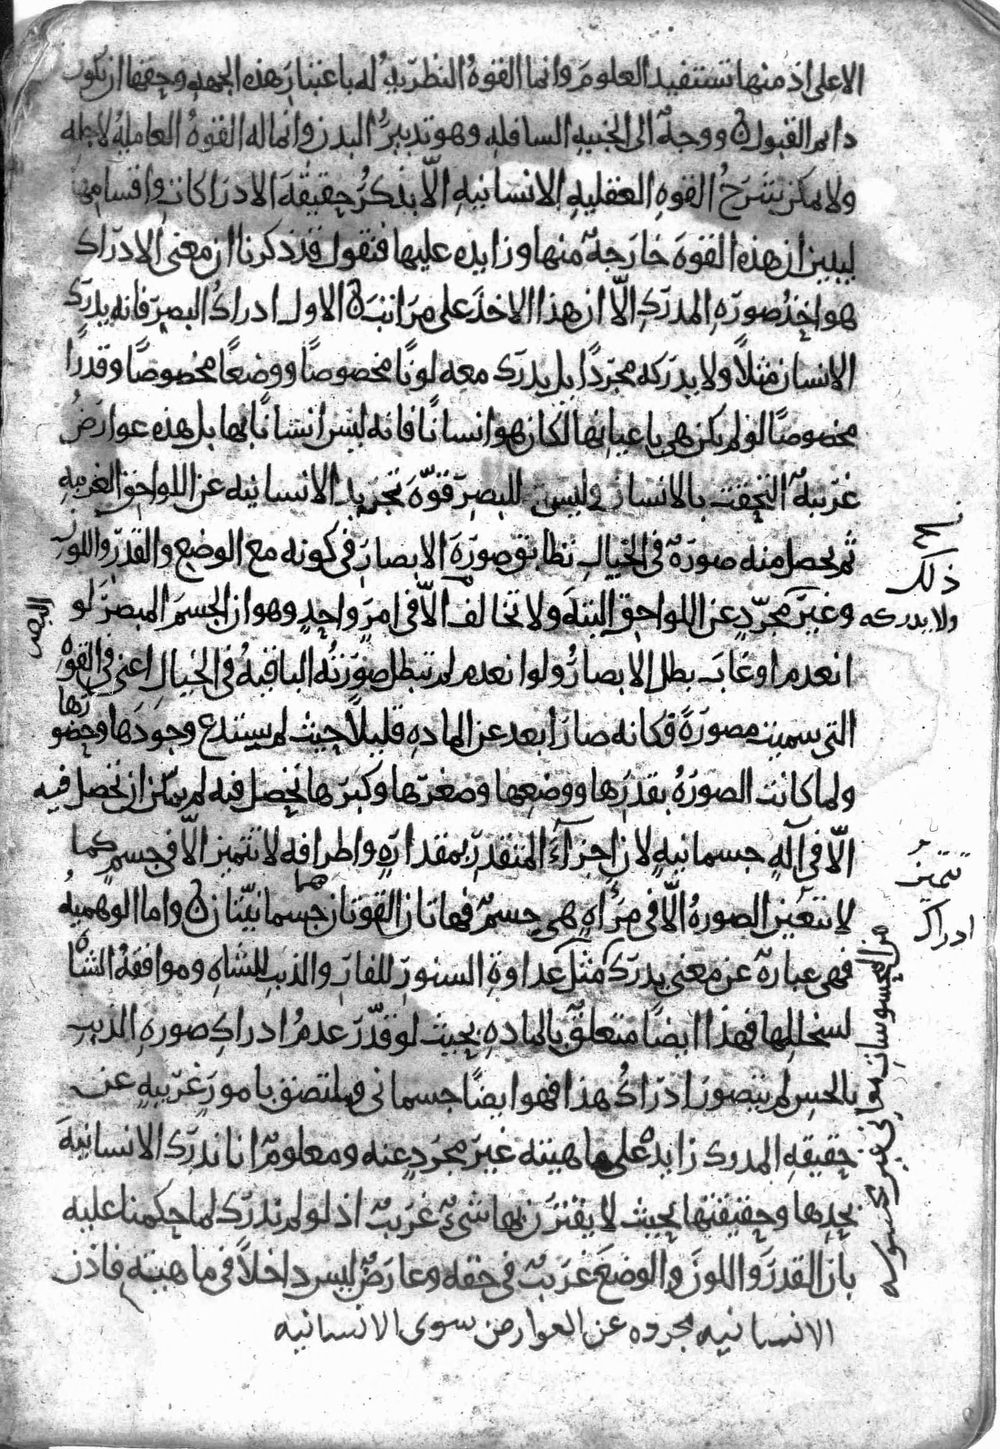 الاعلى اذ منها تستفيد العلوم وانما القوة النظرية له باعتبار هذه الجهه وحقها ان تكون
دايم القبول ووجه الى الجنبه السافله وهو تدبير البدن وانما له القوة العاملة لاجله
ولا يمكن شرح القوه العقليه الانسانيه الّا بذكر حقيقة الادراكات واقسامها
ليبين ان هذه القوة خارجة منها وزايده عليها فنقول قد ذكرنا ان معنى الادراك
هو اخذ صورة المدرك الّا ان هذا الاخذ على مراتب الاول ادراك البصر فانه يدرك
الانسان مثلاً ولا يدركه مجرّدًا بل يدرك معه لونًا مخصوصًا ووضعًا مخصوصًا وقدرًا
مخصوصًا لو لم يكن هي باعيانها لكان هو انسانًا فانه ليس انسانًا بها بل هذه عوارض
غريبة التحقت بالانسان وليس للبصر قوّة تجريد الانسانيه عن اللواحق الغريبه
ثم يحصل منه صورة فى الخيال تطابق صورة الابصار فى كونه مع الوضع والقدر واللون
وغير مجرّد عن اللواحق البتة ولا تخالف الّا فى امر واحد وهو ان الجسم المبصر لو
انعدم او غاب بطل الابصار ولو انعدم لم تبطل صورته الباقية فى الخيال اعنى فى القوه
التى سميت مصورة فكانه صار ابعد عن الماده قليلاً حيث لم يستدع وجودها وحضورها
ولما كانت الصورة بقدرها ووضعها وصغرها وكبرها تحصل فيه لم يمكن ان تحصل فيه
الّا فى آلة جسمانية لان اجزاء المتقدر بمقداره واطرافه لا تتميز الّا فى جسم كما
لا تتعين الصورة الّا فى مرآه هى جسم فهاتان القوتان جسمانيّتان واما الوهمية
هما
فهى عبارة عن معنى يدرك مثل عداوة السنور للفار والذيب للشاه وموافقة الشاة
لسخلها فهذا ايضًا متعلق بالماده بحيث لو قدّر عدم ادراك صوره الذيب
بالحس لم يتصور ادراك هذا فهو ايضًا جسمانى وملتصق بامور غريبه عن
حقيقه المدرك زايد على ماهيته غير مجرد عنه ومعلوم انا ندرك الانسانية
بحدها وحقيقتها بحيث لا يقترن بها شىء غريب اذ لو لم ندرك لما حكمنا عليه
بان القدر واللون والوضع غريب فى حقه وعارض ليس داخلاً فى ماهيته فاذن
الانسانيه مجرده عن العوارض سوى الانسانيه
ذلك
ولا يدركه
البصر
تتميز
ادراك
من المحسوسات معانى غير محسوسه